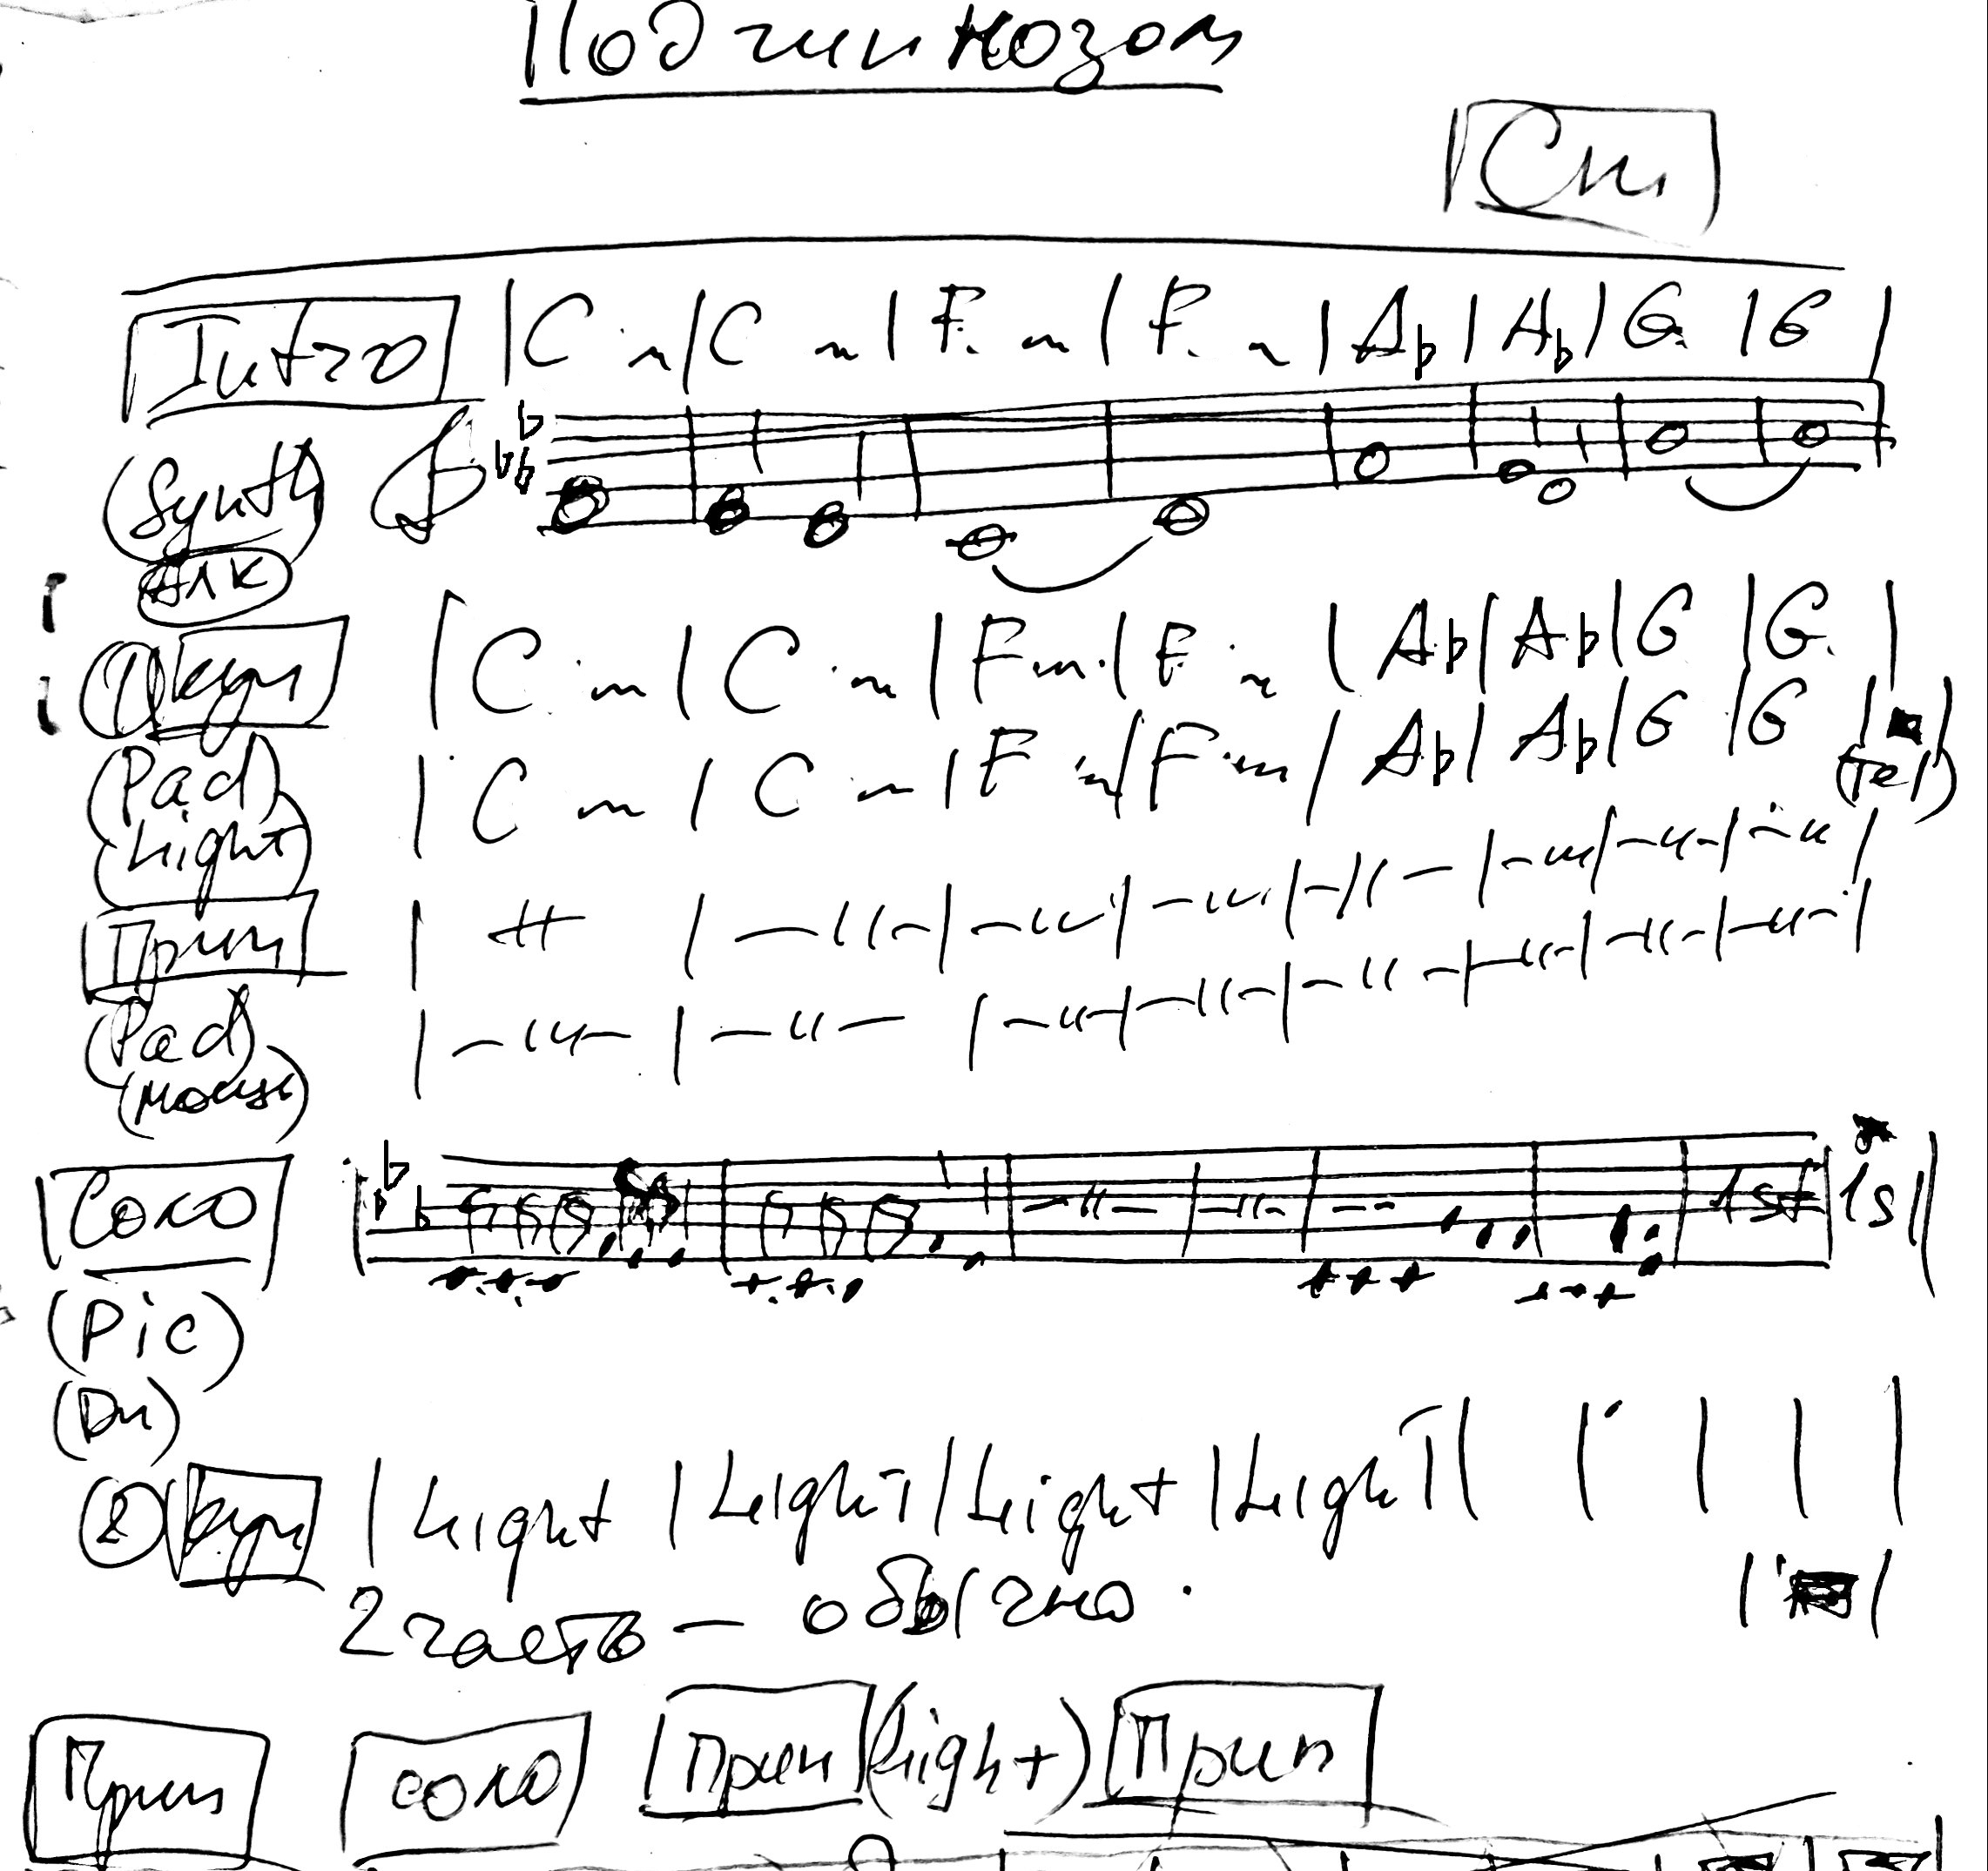 Под гипнозом
Cm
Intro | Cm | Cm | Fm | Fm | A♭ | A♭ | G | G |
(Synth)
① Куп | Cm | Cm | Fm | Fm | A♭ | A♭ | G | G |
(Pad | Cm | Cm | Fm | Fm | A♭ | A♭ | G | G |
Light)
Прип
(Pad
(мощн)
Соло
(Pic)
② Куп | Light | Light | Light | Light |
2 часть – обычно.
Прип соло Прип (Light) Прип